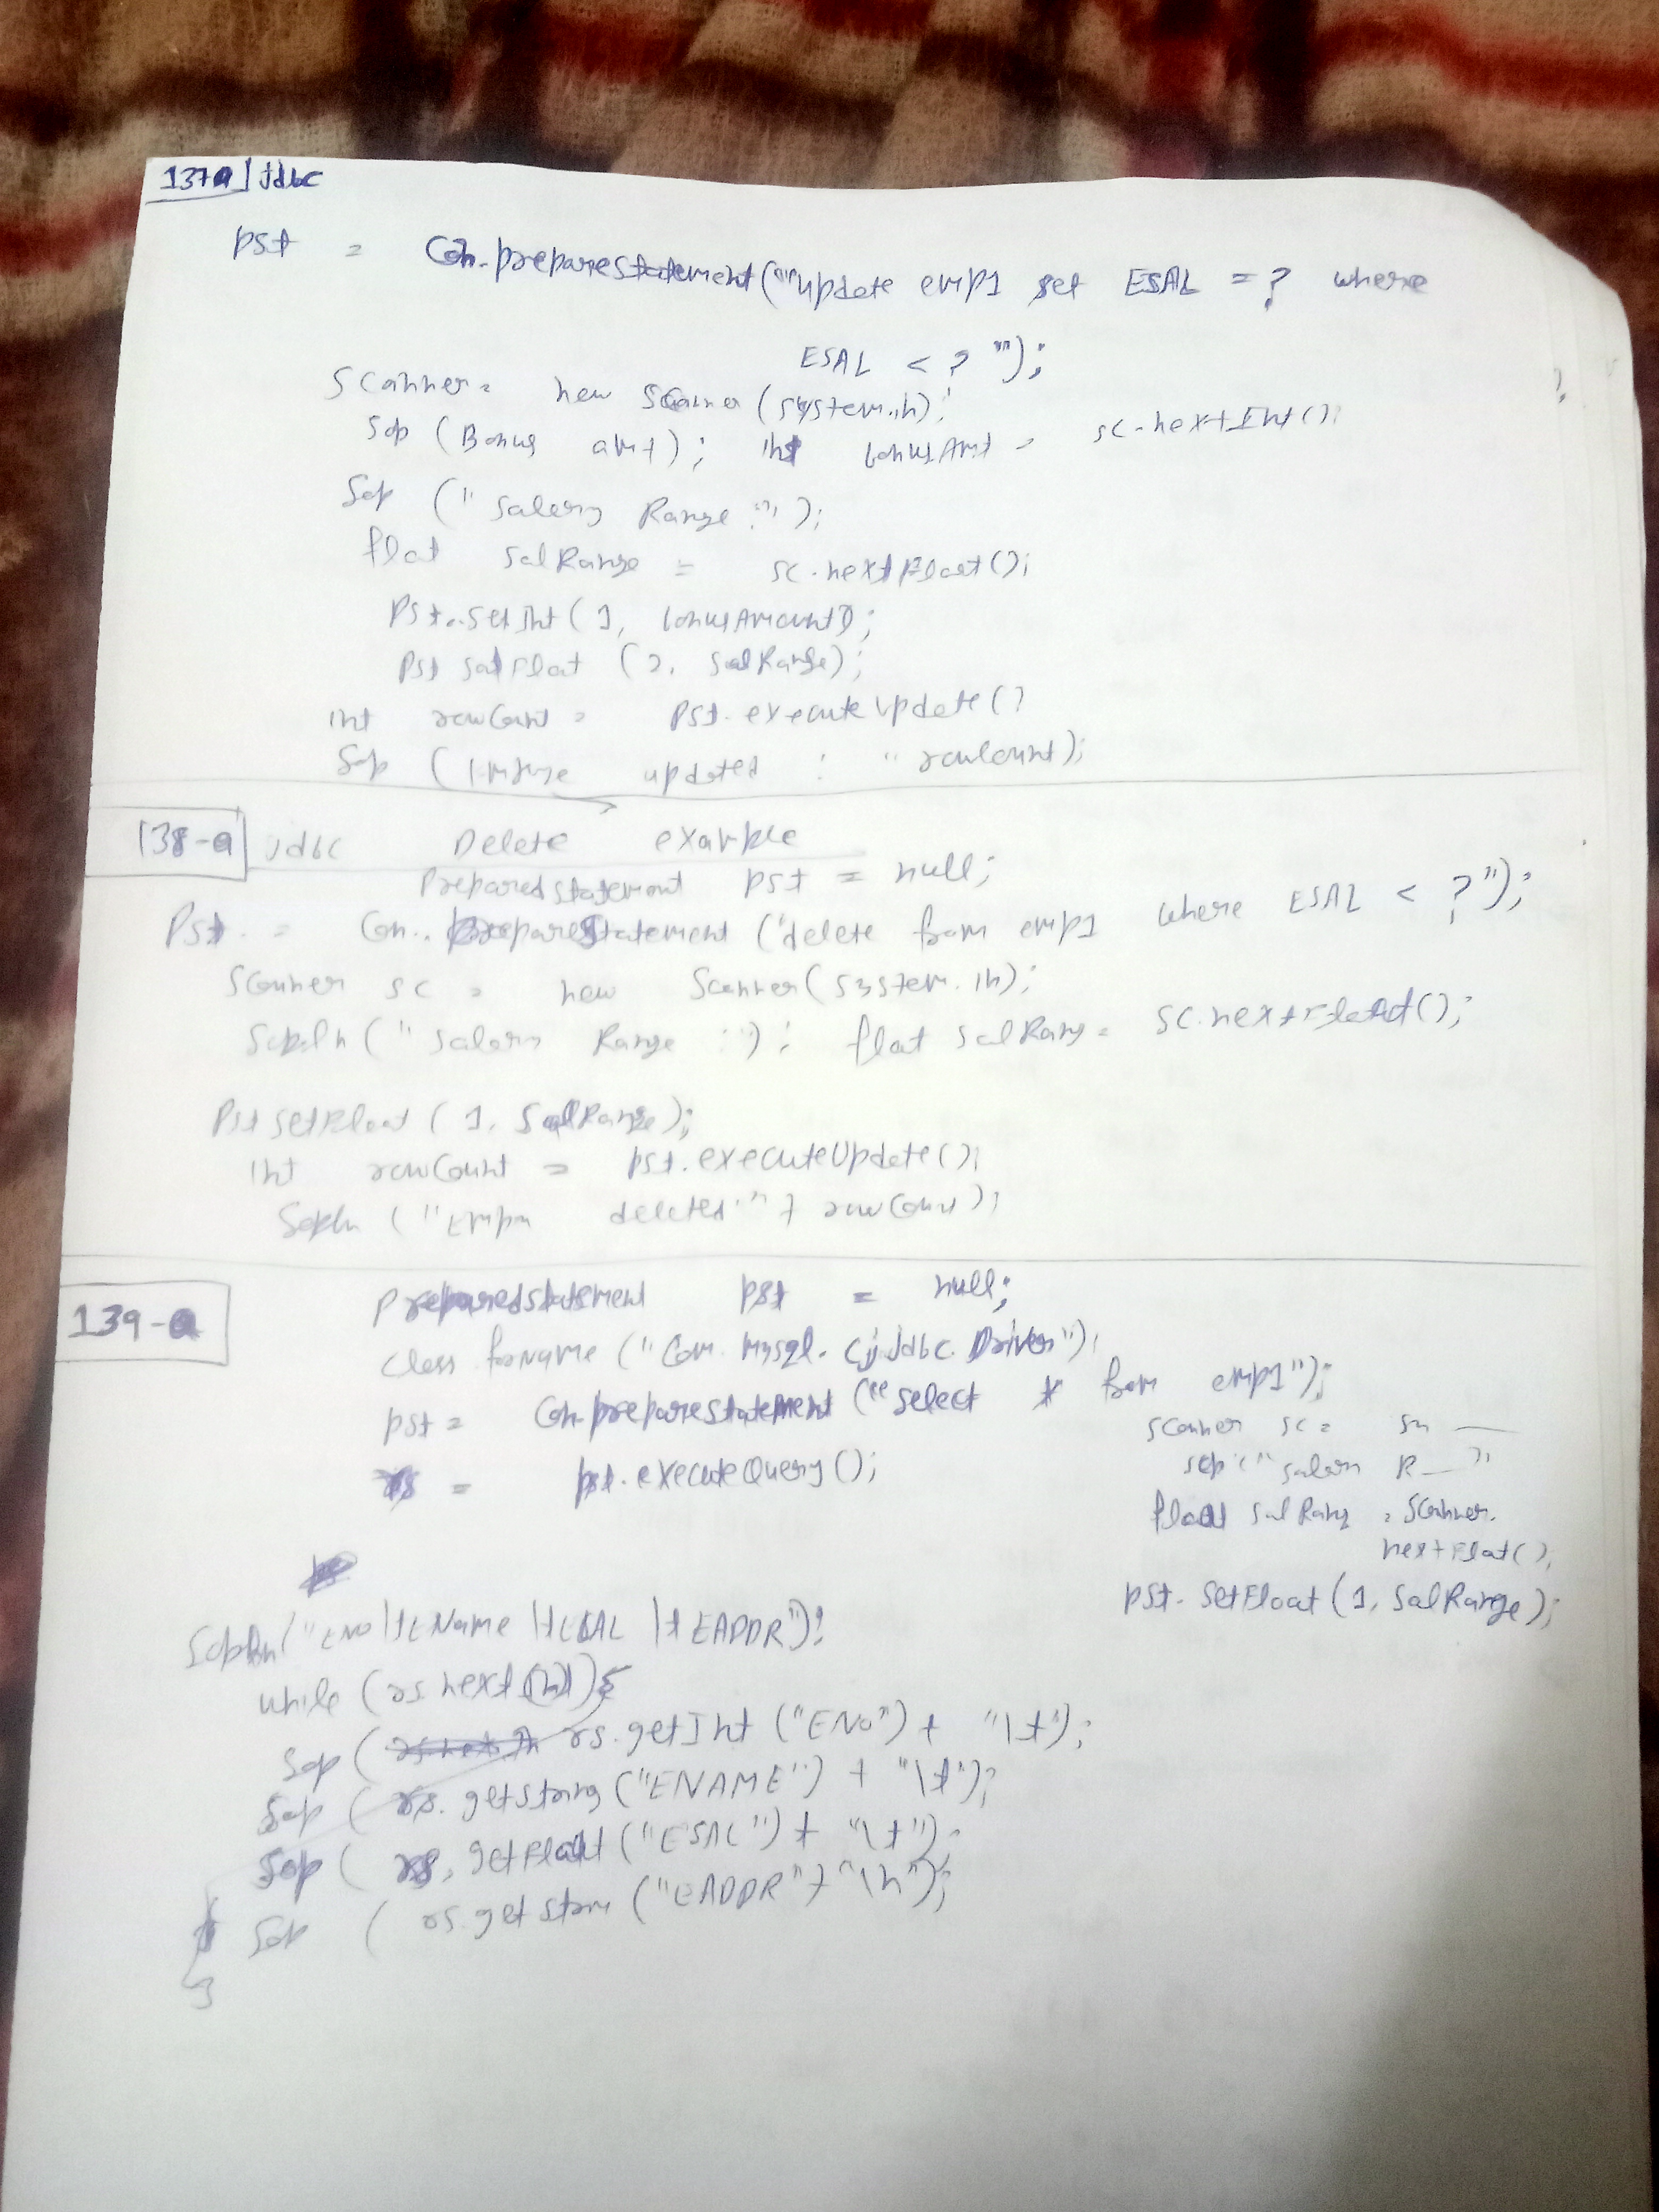 137a] Jdbc
pst = Con.preparestatement(""update emp1 set ESAL = ? where
ESAL < ? "");
Scanner = new Scanner (system.in);
Sop (Bonus amt); int bonusAmt = sc.nextInt();
Sop (" Salary Range :" );
float salRange = sc.nextFloat();
Pst.setInt (1, bonusAmount);
Pst satFloat (2, SalRange);
int rowCount = Pst.executeUpdate()
Sop ( updated : " rowcount);
138-a jdbc Delete example
Preparedstatement pst = null;
Pst. = Con. prepareStatement ("delete from emp1 where ESAL < ?");
Scanner sc = new Scanner(system.in);
Sopln (" Salary Range :"); float salRang = sc.nextFloat();
Pst setFloat (1, SalRange);
int rowCount = pst.executeUpdate();
Sopln ("Empn deleted:" + rowCount);
139-a
Preparedstatement pst = null;
class forname ("Com.mysql.cj.jdbc.Driver");
pst = Con.preparestatement (""select * from emp1");
rs = pst.executeQuery();
Scanner sc = sn
sop (" salary R__");
float salRang = Scanner.
nextFloat();
pst. SetFloat (1, SalRange);
Sopln("ENO\tEName \tESAL \t EADDR");
while (rs.next()){
Sop ( rs.getInt ("ENO") + "\t");
Sop ( rs. getstring ("ENAME") + "\t");
Sop ( rs. getFloat ("ESAL") + "\t");
Sop ( rs.get strin ("EADDR" + "\n");
}